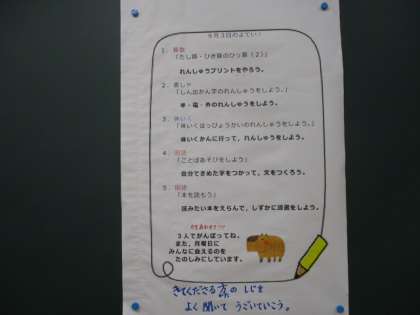 ９月３日のよてい
１ 算数
「たし算・ひき算のひっ算（２）」
れんしゅうプリントをやろう。
２ 書しゃ
「しん出かん字のれんしゅうをしよう。」
のれんしゅうをしよう。
３ 体いく
「体いくはっぴょうかいのれんしゅうをしよう。」
体いくかんに行って、れんしゅうをしよう。
４ 国語
「ことばあそびをしよう」
自分できめた字をつかって、文をつくろう。
５ 国語
「本を読もう」
読みたい本をえらんで、しずかに読書をしよう。
３人でがんばってね。
また、月曜日に
みんなに会えるのを
たのしみにしています。
きてくださる方の しじを
よく聞いて うごいていこう。